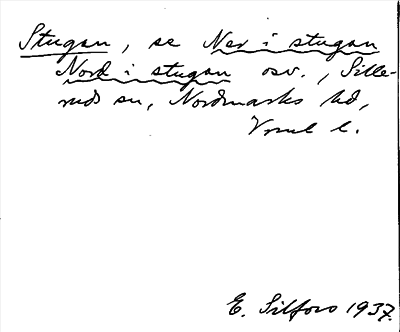 Stugan, se Ner i stugan
Nord i stugan osv., Sille-
ruds sn, Nordmarks hd,
Vrml l.
E. Silfors 1937.